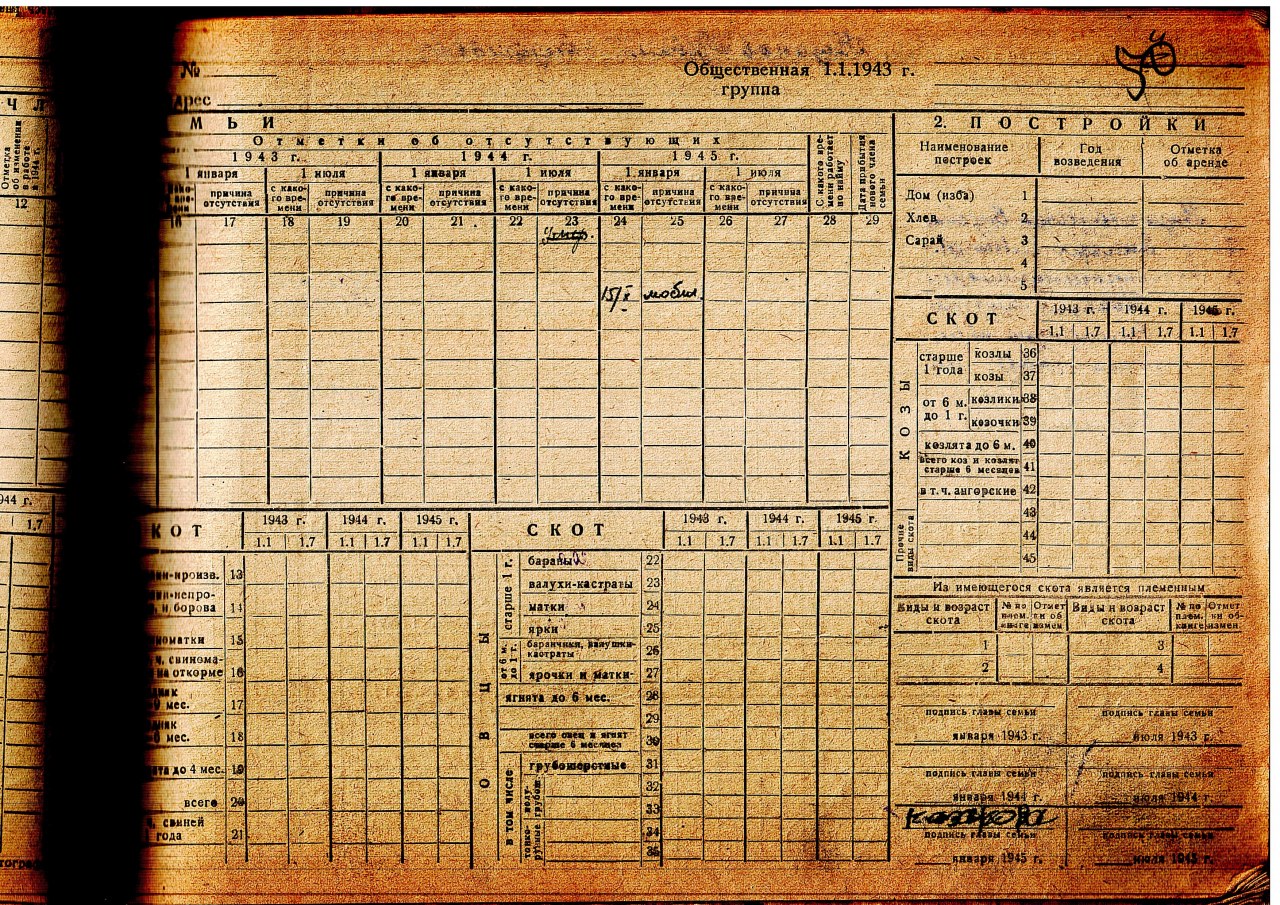 №
Общественная 1.1.1943 г.
группа
дрес
Ч Л
М Ь И
Отметки об отсутствующих
1943 г. 1944 г. 1945 г.
1 января 1 июля 1 января 1 июля 1 января 1 июля
причина отсутствия с како-го вре-мени причина отсутствия с како-го вре-мени причина отсутствия с како-го вре-мени причина отсутствия с како-го вре-мени причина отсутствия с како-го вре-мени причина отсутствия
С какого вре-мени работает по найму
Дата прибытия нового члена семьи
Отметка об изменении в работе в 1944 г.
12 16 17 18 19 20 21 22 23 24 25 26 27 28 29
умер.
15/X мобил.
2. ПОСТРОЙКИ
Наименование построек Год возведения Отметка об аренде
Дом (изба) 1
Хлев 2
Сарай 3
4
5
СКОТ 1943 г. 1944 г. 1945 г.
1.1 1.7 1.1 1.7 1.1 1.7
КОЗЫ
старше 1 года козлы 36
козы 37
от 6 м. до 1 г. козлики 38
козочки 39
козлята до 6 м. 40
всего коз и козлят старше 6 месяцев 41
в т. ч. ангорские 42
Прочие виды скота
43
44
45
Из имеющегося скота является племенным
Виды и возраст скота № по плем. книге Отмет ки об измен Виды и возраст скота № по плем. книге Отмет ки об измен
1 3
2 4
подпись главы семьи подпись главы семьи
января 1943 г. июля 1943 г.
подпись главы семьи подпись главы семьи
января 1944 г. июля 1944 г.
подпись главы семьи подпись главы семьи
января 1945 г. июля 1945 г.
944 г.
1.7
КОТ 1943 г. 1944 г. 1945 г.
1.1 1.7 1.1 1.7 1.1 1.7
ки-произв. 13
ки-непро-
и борова 14
иноматки 15
ч. свинома-
на откорме 16
9 мес. 17
6 мес. 18
ята до 4 мес. 19
всего 20
свиней
года 21
СКОТ 1943 г. 1944 г. 1945 г.
1.1 1.7 1.1 1.7 1.1 1.7
ОВЦЫ
старше 1 г.
бараны 22
валухи-кастраты 23
матки 24
ярки 25
от 6 м. до 1 г.
баранчики, валушки-кастраты 26
ярочки и матки 27
ягнята до 6 мес. 28
29
всего овец и ягнят старше 6 месяцев 30
в том числе
грубошерстные 31
полу-грубош.
32
33
тонко-рунные
34
35